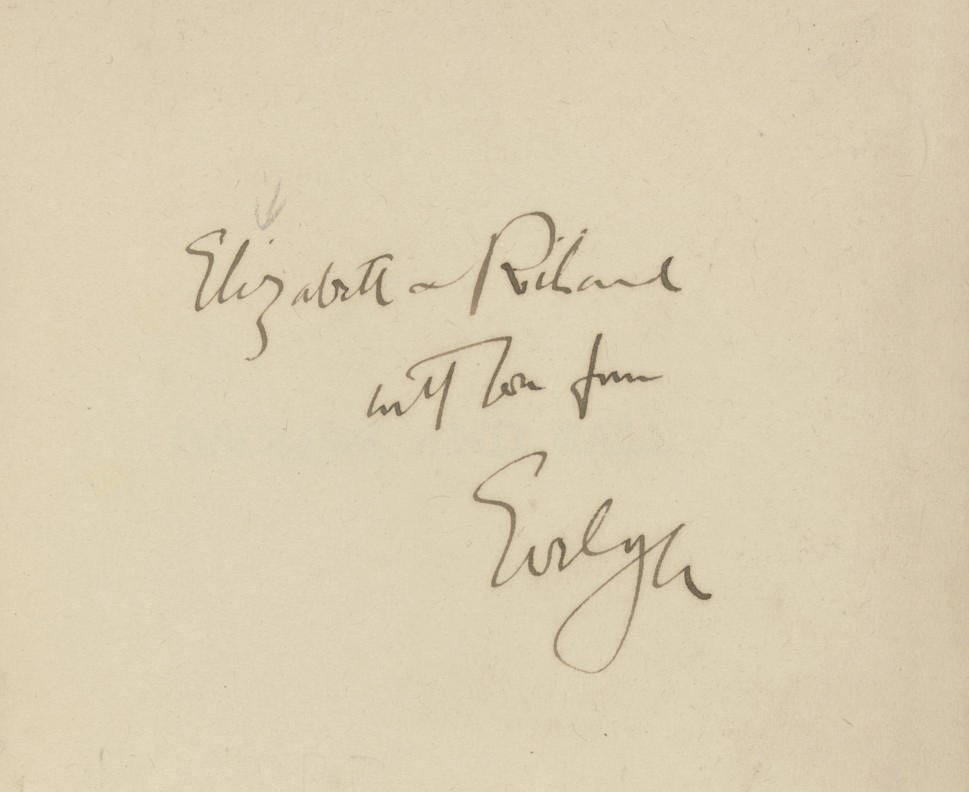 Elizabeth & Richard
with love from
Evelyn